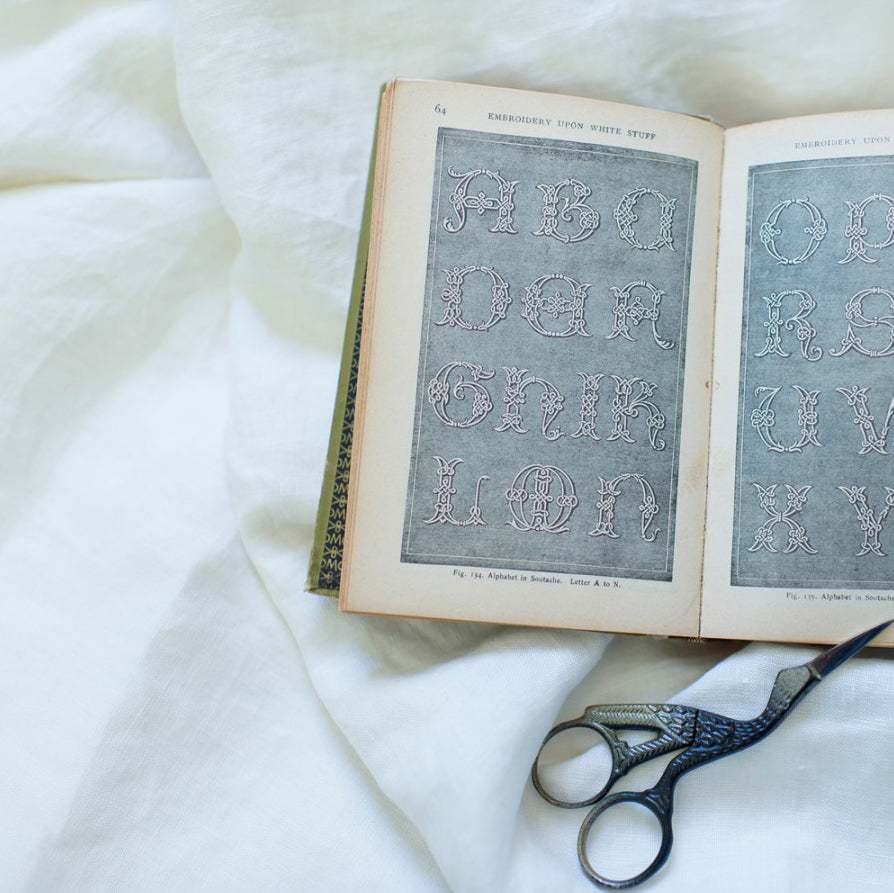 64
EMBROIDERY UPON WHITE STUFF
A B C
D E F
G H I K
L M N
Fig. 134. Alphabet in Soutache. Letter A to N.
EMBROIDERY UPON
O P
R S
U V
X Y
Fig. 135. Alphabet in Soutache
DMC